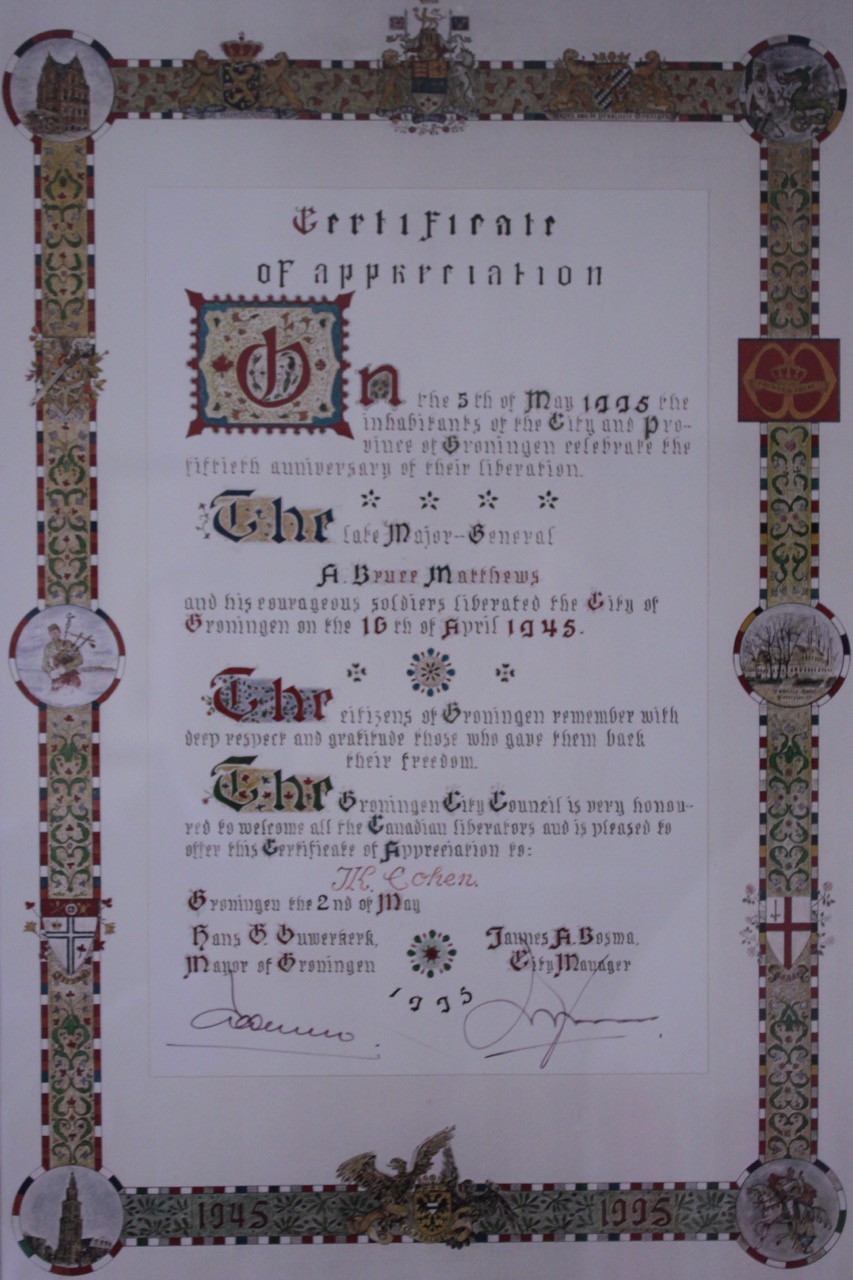 Certificate
of appreciation
On the 5th of May 1995 the
inhabitants of the City and Pro-
vince of Groningen celebrate the
fiftieth anniversary of their liberation.
The late Major-General
A. Bruce Matthews
and his courageous soldiers liberated the City of
Groningen on the 16th of April 1945.
The citizens of Groningen remember with
deep respect and gratitude those who gave them back
their freedom.
The Groningen City Council is very honou-
red to welcome all the Canadian liberators and is pleased to
offer this Certificate of Appreciation to:
TK. Cohen.
Groningen the 2nd of May
Hans G. Ouwerkerk, Jannes A. Bosma,
Mayor of Groningen City Manager
1995
1945 1995